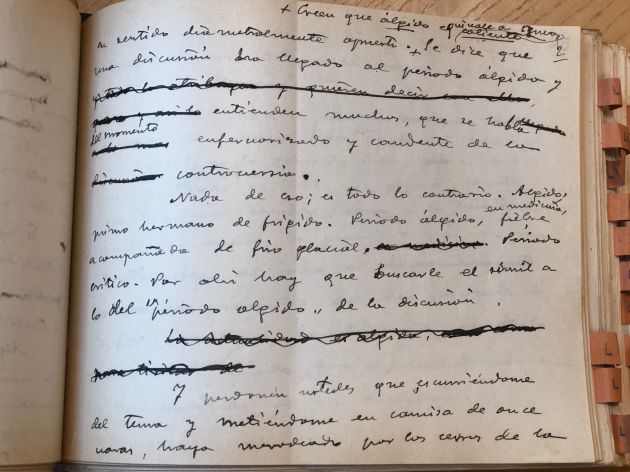 + Creen que álgido equivale a
caliente
en sentido diametralmente opuesto. + Se dice, que
una discusión ha llegado al período álgido y
y quieren decir con ello,
entienden muchos, que se habla
del momento enfervorizado y candente de la
controversia.
Nada de eso; es todo lo contrario. Algido,
primo hermano de frígido. Período álgido, en medicina, fiebre
acompañada de frío glacial. Período
crítico. Por ahí hay que buscarle el símil a
lo del "período algido" de la discusión.
La actualidad es algida,
Y perdonen ustedes que escurriéndome
del tema y metiéndome en camisa de once
varas, haya merodeado por los cerros de la
L
L
L
L